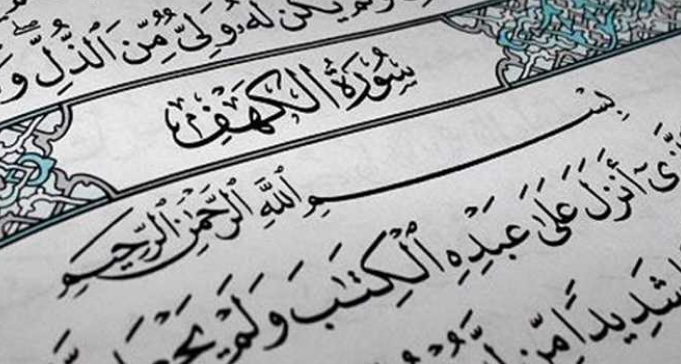 يَكُن لَّهُۥ وَلِىٌّ مِّنَ ٱلذُّلِّ
سُورَةُ الكَهْفِ
بِسْمِ ٱللَّهِ ٱلرَّحْمَٰنِ ٱلرَّحِيمِ
أَنزَلَ عَلَىٰ عَبْدِهِ ٱلْكِتَٰبَ وَلَمْ
شَدِيدًا مِّن